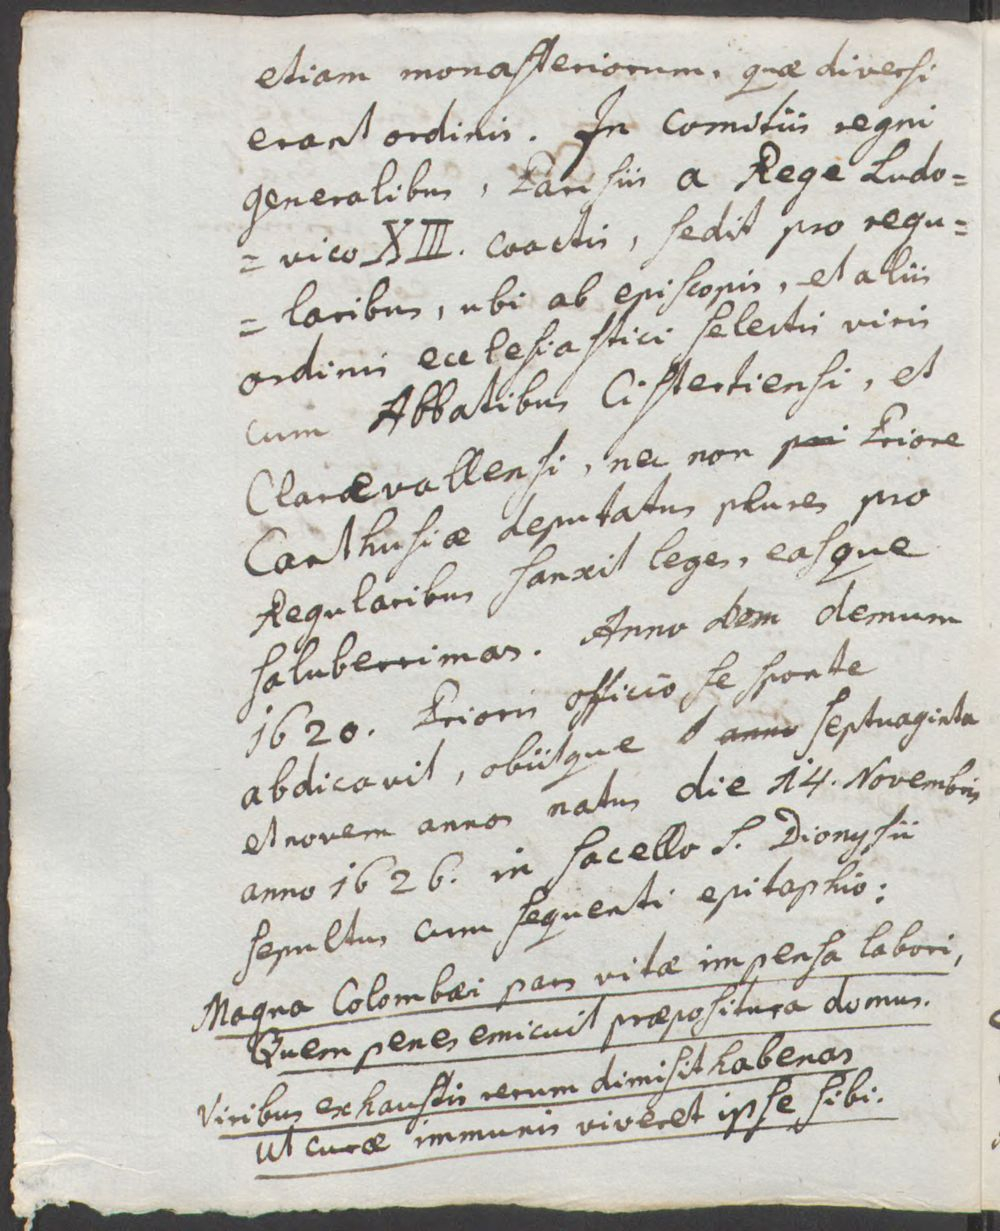 etiam monasteriorum, quæ diversi
erant ordinis. In comitiis regni
generalibus, Parisiis a Rege Ludo=
= vico XIII. coactis, sedit pro regu=
= laribus, ubi ab episcopis, et aliis
ordinis ecclesiastici selectis viris
cum Abbatibus Cistertiensi, et
Clarævallensi, nec non pri Priore
Carthusiæ deputatus plures pro
Regularibus sanxit leges, easque
saluberrimas. Anno dem demum
1620. Prioris officio se sponte
abdicavit, obiitque anno septuaginta
et novem annos natus die 14. Novembris
anno 1626. in sacello S. Dionysii
sepultus cum sequenti epitaphio:
Magna Colombæi pars vitæ impensa labori,
Quem penes emicuit præpositura domus.
Viribus exhaustis rerum dimisit habenas
Ut curæ immunis viveret ipse sibi.